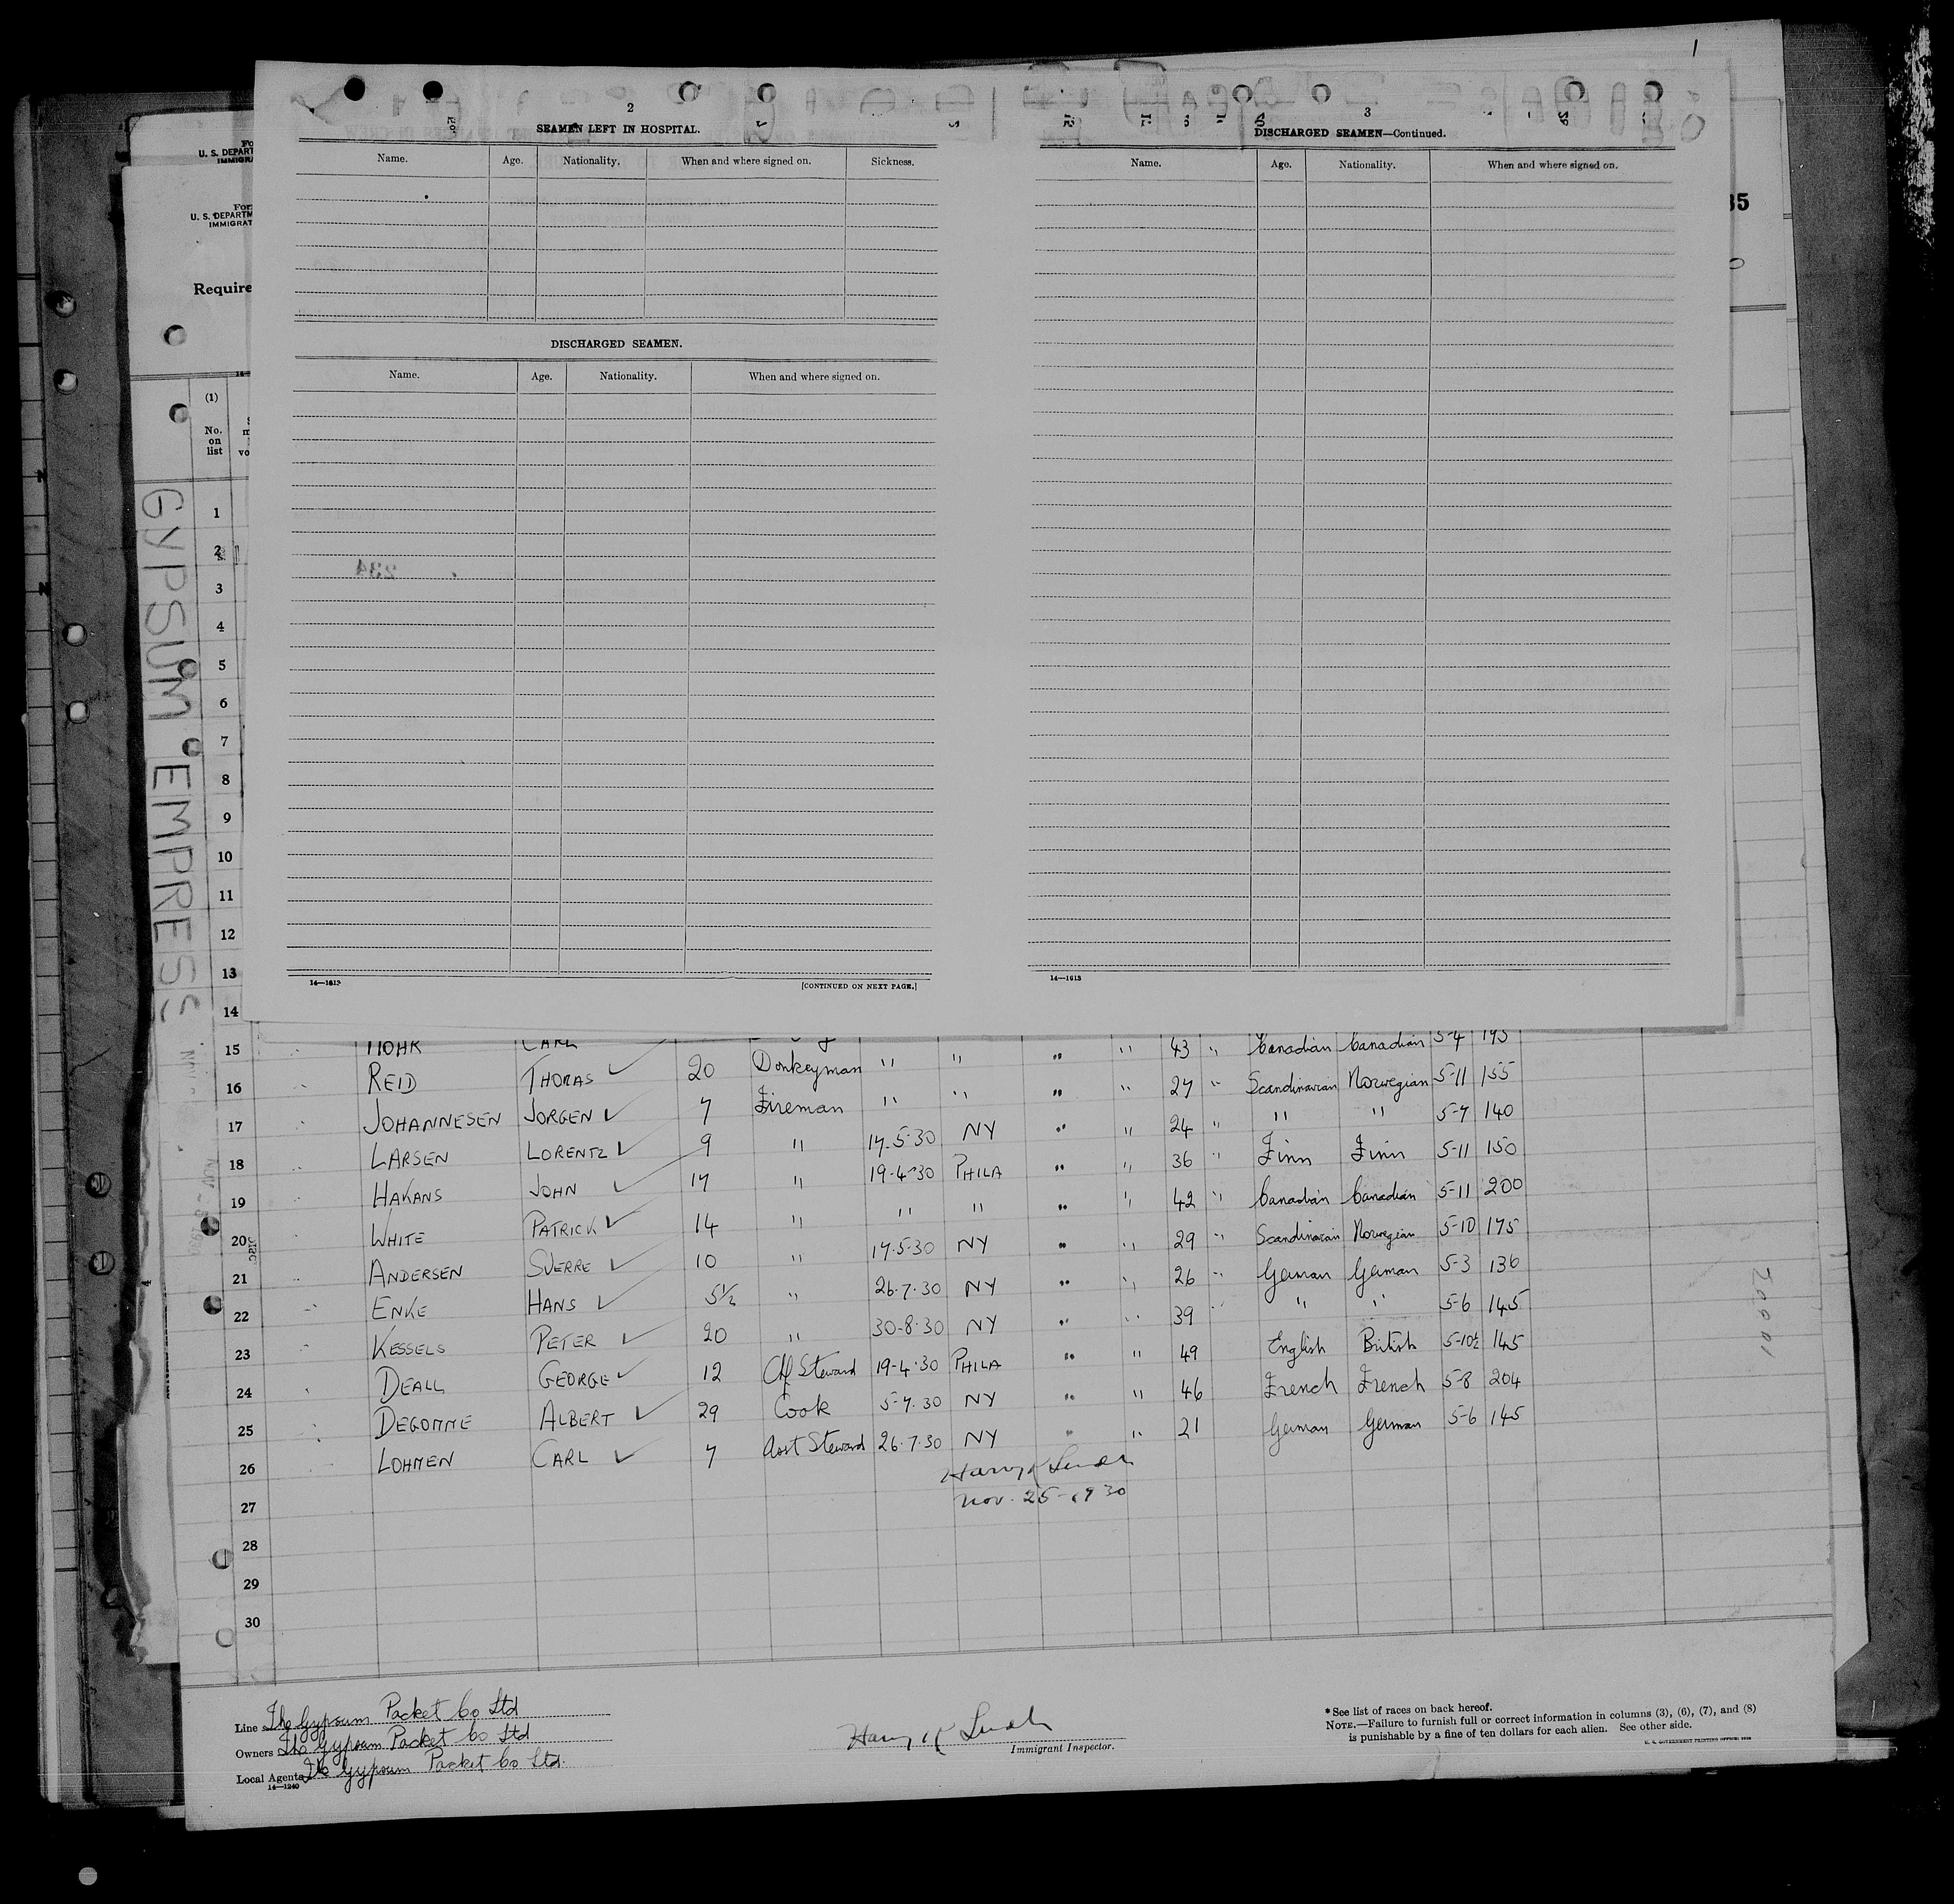 1
2
SEAMEN LEFT IN HOSPITAL.
Name. Age. Nationality. When and where signed on. Sickness.
DISCHARGED SEAMEN.
Name. Age. Nationality. When and where signed on.
234
14—1613
[CONTINUED ON NEXT PAGE.]
3
DISCHARGED SEAMEN—Continued.
Name. Age. Nationality. When and where signed on.
14—1613
35
U. S. DEPART
IMMIGRA
U. S. DEPARTM
IMMIGRAT
Require
(1)
No. on list
GYPSUM EMPRESS
1
2
3
4
5
6
7
8
9
10
11
12
13
14
15 43 " Canadian Canadian 5-4 195
16 REID THOMAS 20 Donkeyman " " " " 27 " Scandinavian Norwegian 5-11 155
17 JOHANNESEN JORGEN 7 Fireman " " " " 24 " " " 5-7 140
18 LARSEN LORENTZ 9 " 17-5-30 NY " " 36 " Finn Finn 5-11 150
19 HAKANS JOHN 17 " 19-4-30 PHILA " " 42 " Canadian Canadian 5-11 200
20 WHITE PATRICK 14 " " " " " 29 " Scandinavian Norwegian 5-10 175
21 ANDERSEN SVERRE 10 " 17-5-30 NY " " 26 " German German 5-3 136
22 ENKE HANS 5½ " 26-7-30 NY " " 39 " " " 5-6 145
23 KESSELS PETER 20 " 30-8-30 NY " " 49 English British 5-10½ 145
24 DEALL GEORGE 12 Chf Steward 19-4-30 PHILA " " 46 French French 5-8 204
25 DEGOMME ALBERT 29 Cook 5-7-30 NY " " 21 German German 5-6 145
26 LOHMEN CARL 7 Asst Steward 26-7-30 NY
27 Nov. 25-1930
28
29
30
Line The Gypsum Packet Co Ltd
Owners The Gypsum Packet Co Ltd
Local Agents The Gypsum Packet Co Ltd.
14—1240
Immigrant Inspector.
* See list of races on back hereof.
NOTE.—Failure to furnish full or correct information in columns (3), (6), (7), and (8)
is punishable by a fine of ten dollars for each alien. See other side.